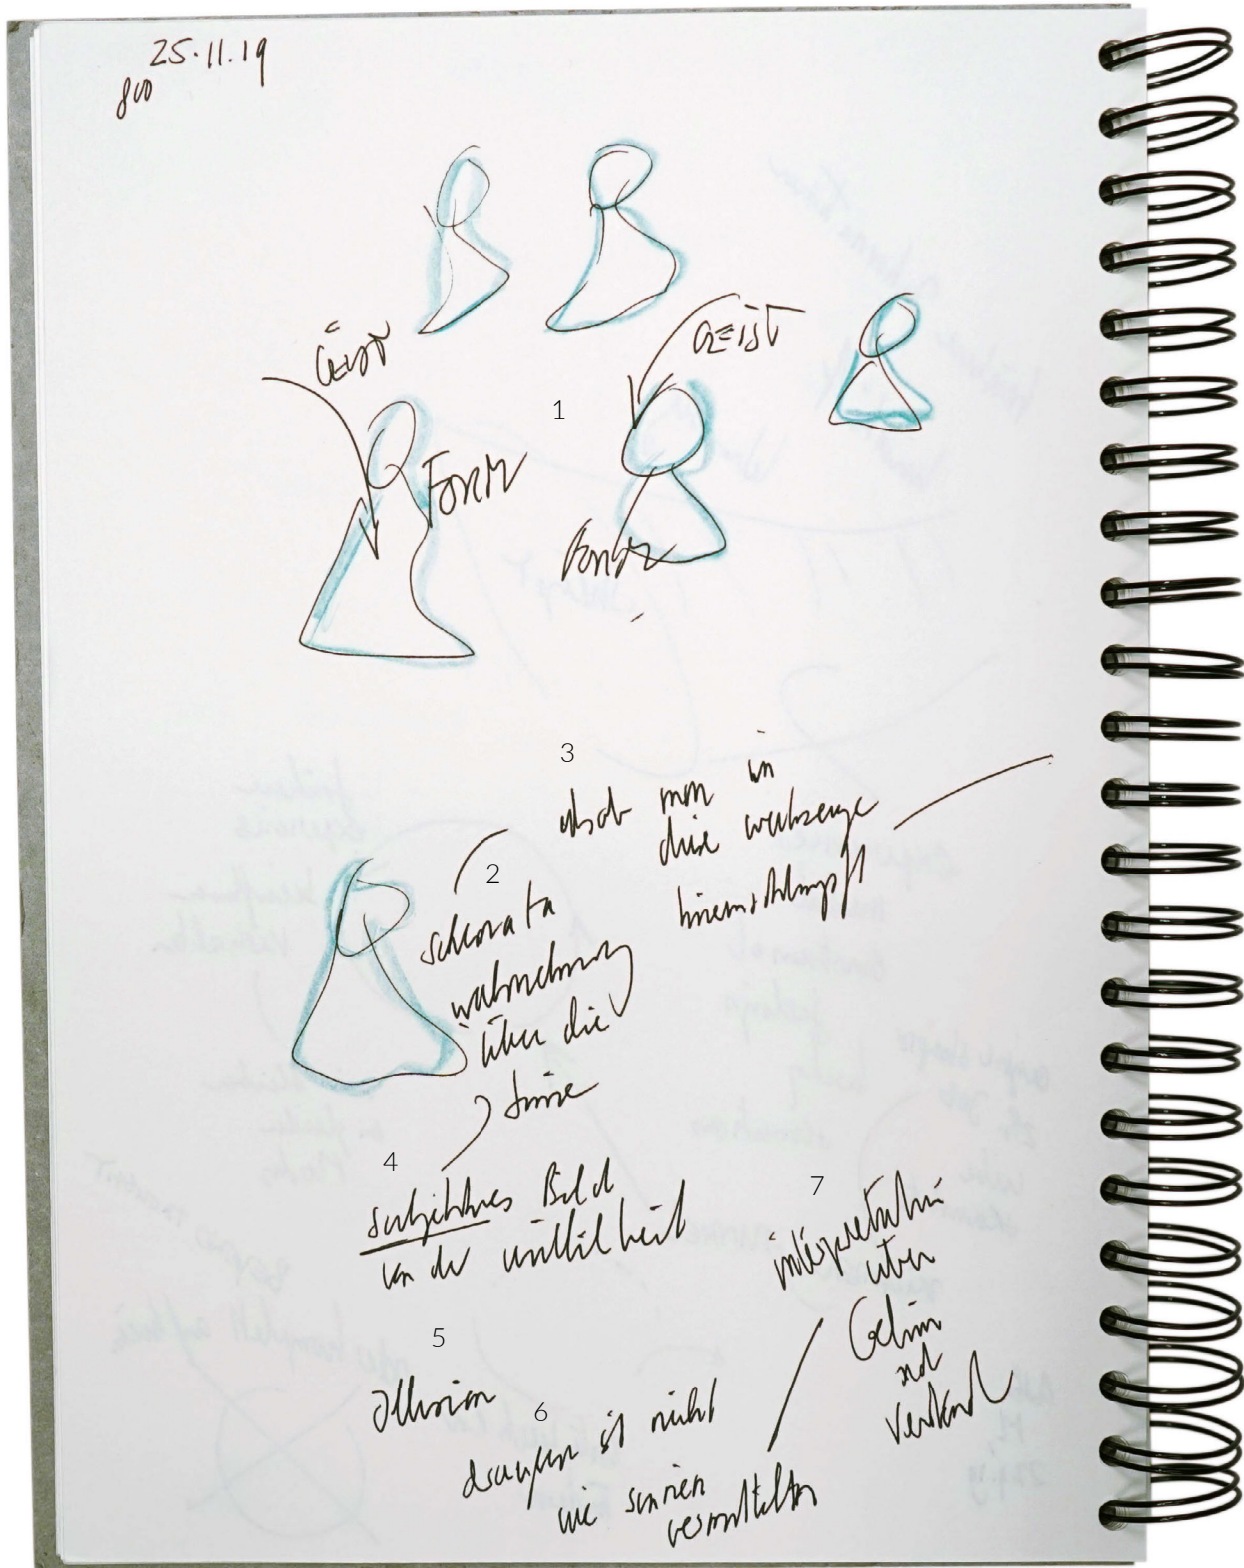 25.11.19
800
GEIST
GEIST
1
FORM
FORM
3
als ob man in
diese werkzeuge
hineinschlüpft
2
wahrnehmung
über die
sinne
4
subjektives Bild
von der wirklichkeit
7
interpretation
über
Gehirn
und
Verstand
5
Illusion
6
draussen ist nicht
wie sinnen
vermitteln